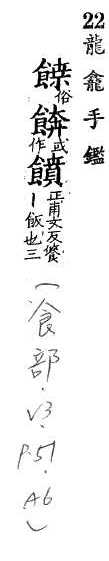 22
龍龕手鑑
餗俗
餴或作
饙正甫文反餐
丨飯也三
(食部.
V3.
P.51.
A6)